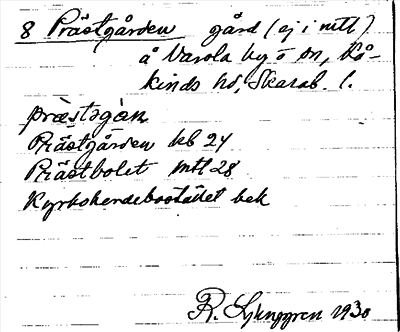 8 Prästgården gård (ej i mtl)
å Varola by o sn, Vå-
kinds hd, Skarab. l.
præstogàn
Prästgården kb 24
Prästbolet mtl 28
Kyrkoherdebostället bek
R. Ljunggren 1930